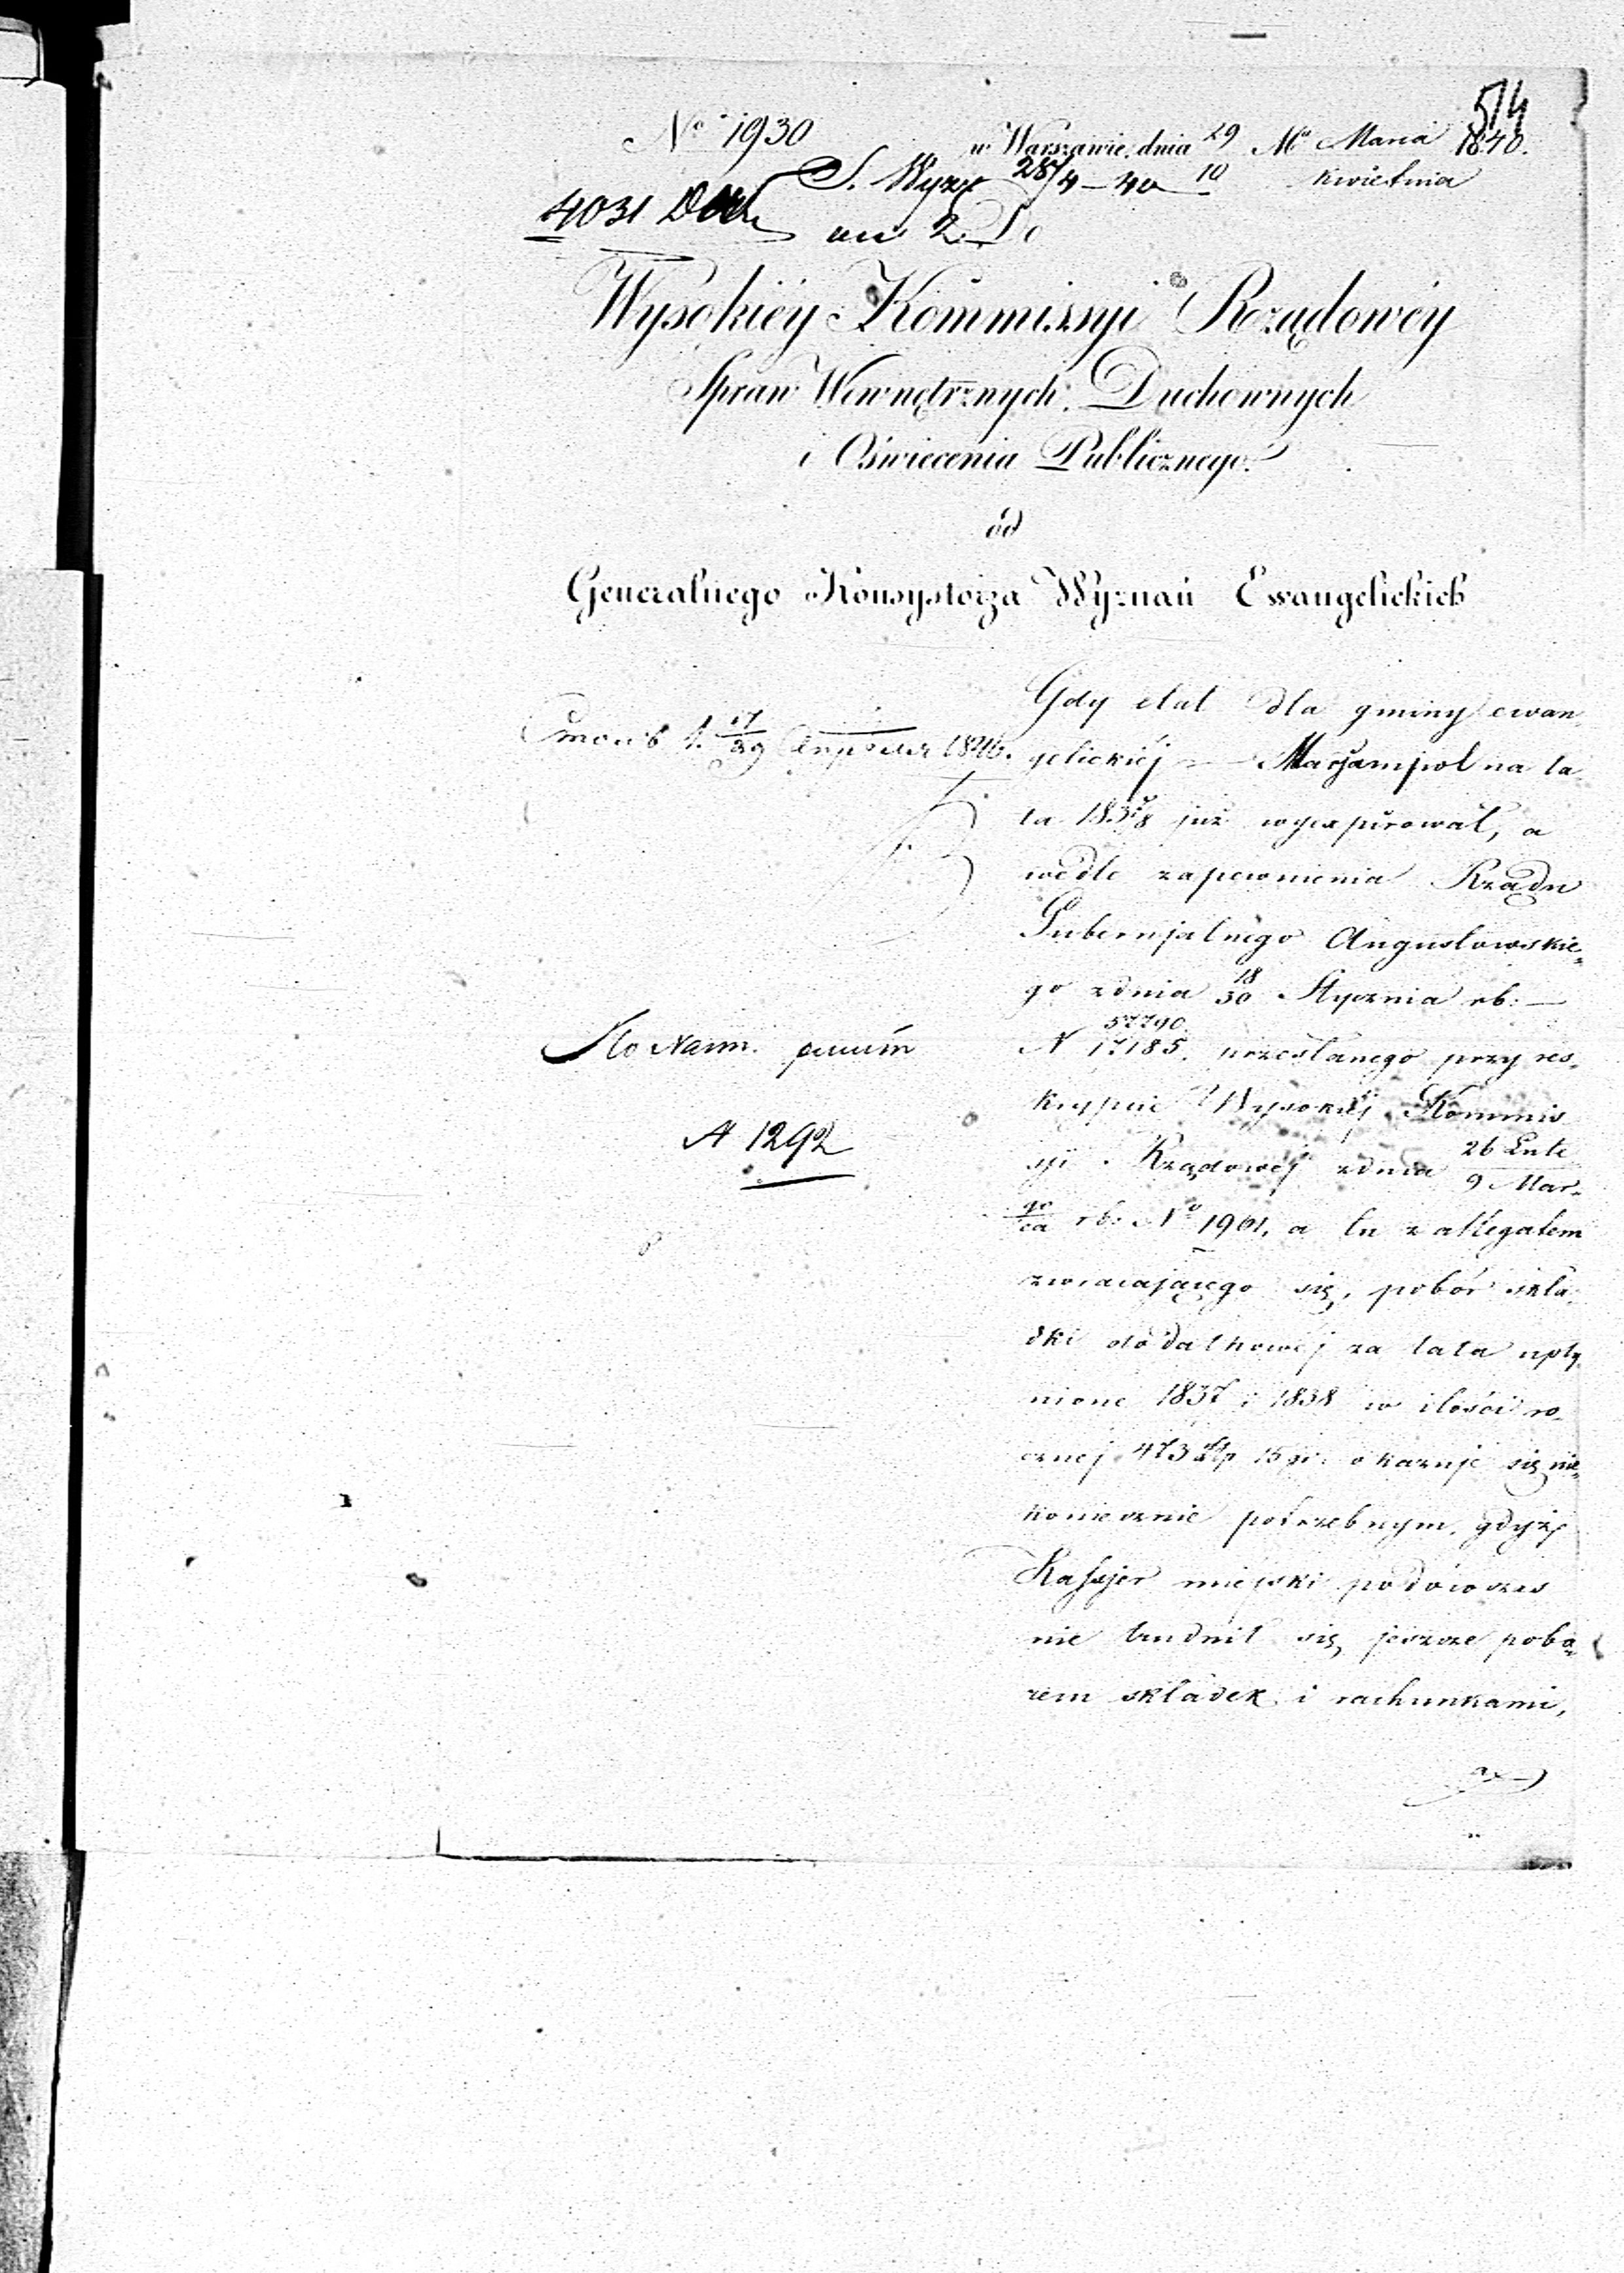 514
No 1930
w Warszawie, dnia 29 Marca 1840.
10 Kwietnia
4031
28/4 – 40
Do
Wysokiéy Kommissyi Rządowéy
Spraw Wewnętrznych, Duchownych
i Oświecenia Publicznego.
od
Generalnego Konsystorza Wyznań Ewangelickich
Gdy etat dla gminy ewan
gelickiéj Maryampol na la
ta 1837/8 już wyexpirował, a
wedle zapewnienia Rządu
Gubernjalnego Augustowskie
go zdnia 18/30 Stycznia rb:
N 57790/17185. przesłanego przy res
krypcie Wysokiéj Kommis
syi Rządowéj zdnia 26 Lute
9 Mar
go
ca rb: No 1961, a tu z allegatem
zwracającego się, pobór skła
dki dodatkowéj za lata upły
nione 1837 i 1838 w ilości ro
cznej 473 złp 15 gr: okazuje się nie
koniecznie potrzebnym, gdyż
Kassjer miejski podówczas
nie trudnił się jeszcze pobo
rem składek i rachunkami,
N 1292